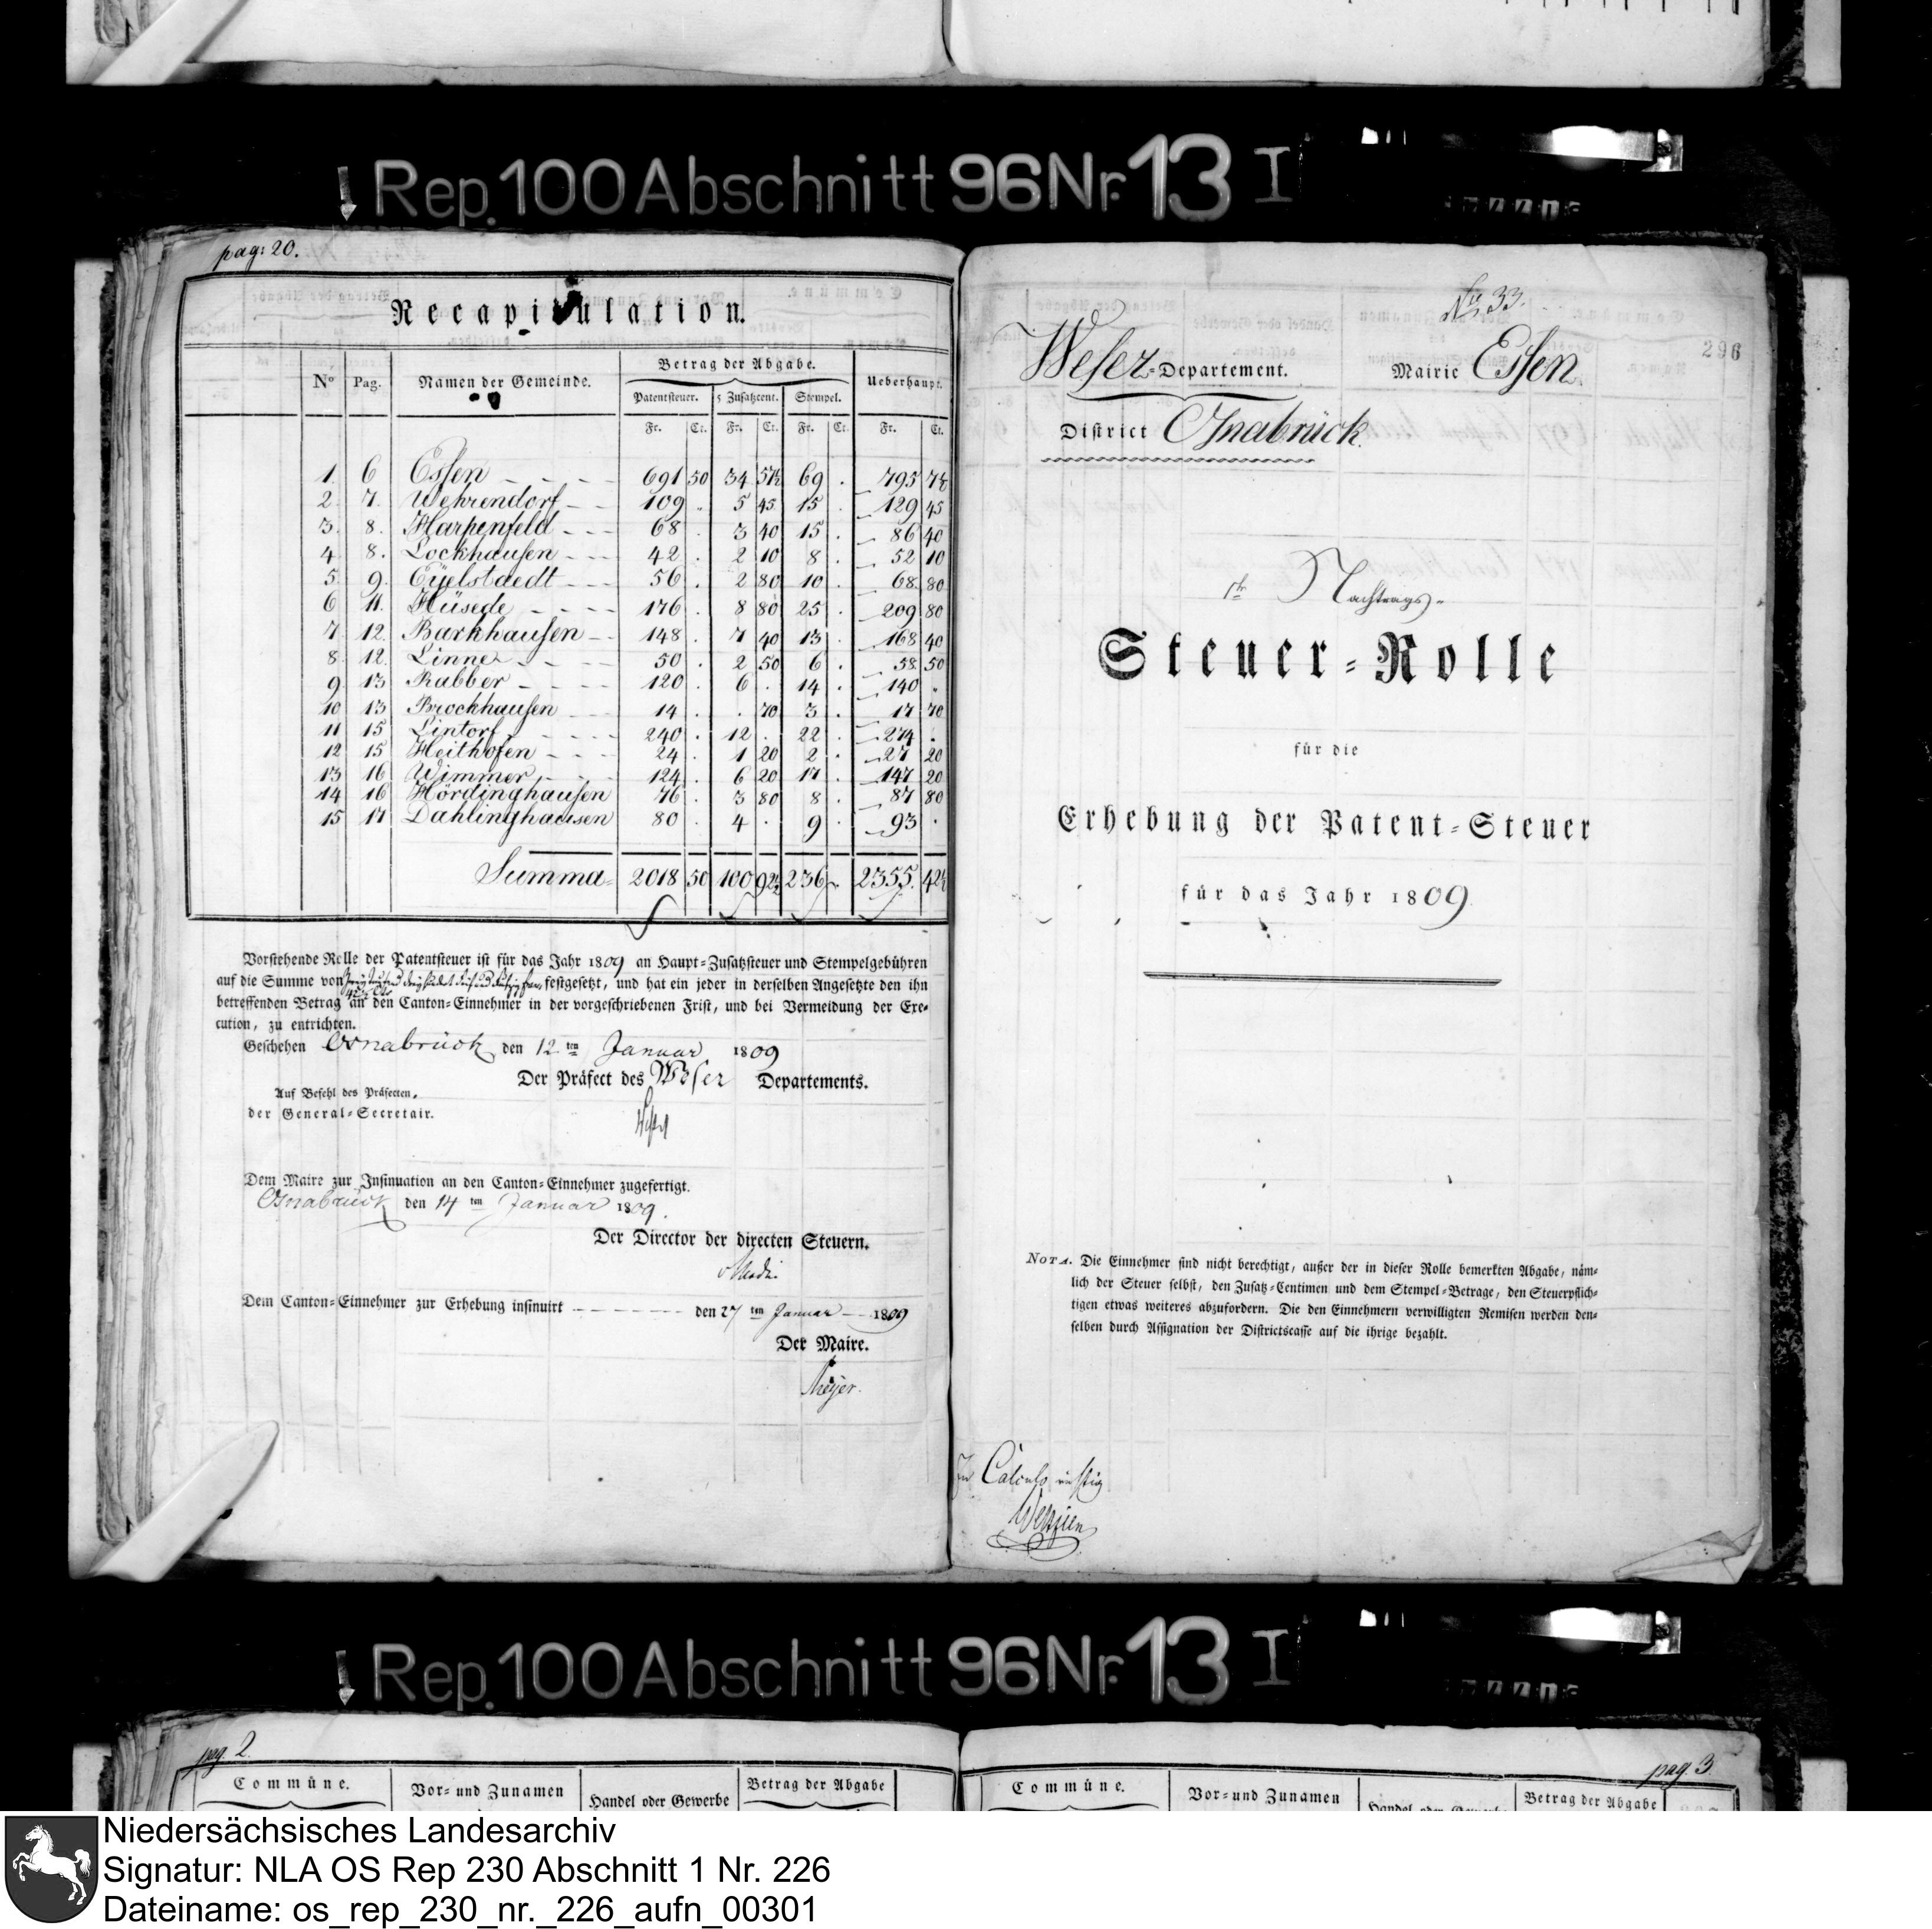 Rep. 100 Abschnitt 96 Nr. 13 I
pag: 20.
Recapitulation.
No Pag. Namen der Gemeinde. Betrag der Abgabe. Ueberhaupt.
Patentsteuer. 5 Zusatzcent. Stempel.
Fr. Ct. Fr. Ct. Fr. Ct. Fr. Ct.
1. 6 Essen 691 50 34 57½ 69 . 795 7½
2. 7. Wehrendorf 109 . 5 45 15 . 129 45
3. 8. Harpenfeld 68 . 3 40 15 . 86 40
4 8. Lockhausen 42 . 2 10 8 . 52 10
5. 9. Eÿelstaedt 56 . 2 80 10 . 68. 80
6 11. Hüsede 176 . 8 80 25 . 209 80
7 12. Barkhausen 148 . 7 40 13 . 168 40
8. 12. Linne 50 . 2 50 6 . 58. 50
9 13 Rabber 120 . 6 . 14 . 140 .
10 13 Brockhausen 14 . . 70 3 . 17 70
11 15 Lintorf 240 . 12 . 22 . 274 .
12 15 Heithofen 24 . 1 20 2 . 27 20
13 16 Wimmer 124 . 6 20 17 . 147 20
14 16 Hördinghausen 76 . 3 80 8 . 87 80
15 17 Dahlinghausen 80 . 4 . 9 . 93 .
Summa 2018 50 100 92½ 236 . 2355. 42½
Vorstehende Rolle der Patentsteuer ist für das Jahr 1809 an Haupt-Zusatzsteuer und Stempelgebühren
auf die Summe von festgesetzt, und hat ein jeder in derselben Angesetzte den ihn
betreffenden Betrag an den Canton-Einnehmer in der vorgeschriebenen Frist, und bei Vermeidung der Exe-
cution, zu entrichten.
Geschehen Osnabrück den 12ten Januar 1809
Der Präfect des Weser Departements.
Auf Befehl des Präfecten.
der General-Secretair.
Dem Maire zur Insinuation an den Canton-Einnehmer zugefertigt.
Osnabrück den 14ten Januar 1809.
Der Director der directen Steuern.
Dem Canton-Einnehmer zur Erhebung insinuirt den 27ten Januar 1809
Der Maire.
Meÿer.
No 33.
296
Weser-Departement. Mairie Essen
District Osnabrück.
Nachtrags-
Steuer-Rolle
für die
Erhebung der Patent-Steuer
für das Jahr 1809
NOTA. Die Einnehmer sind nicht berechtigt, außer der in dieser Rolle bemerkten Abgabe, näm-
lich der Steuer selbst, den Zusatz-Centimen und dem Stempel-Betrage, den Steuerpflich-
tigen etwas weiteres abzufordern. Die den Einnehmern verwilligten Remisen werden den-
selben durch Assignation der Districtscasse auf die ihrige bezahlt.
In Calculo richtig
Rep. 100 Abschnitt 96 Nr. 13 I
pag. 2.
Commüne. Vor- und Zunamen Handel oder Gewerbe Betrag der Abgabe
pag 3
Commüne. Vor- und Zunamen Handel oder Gewerbe Betrag der Abgabe
Niedersächsisches Landesarchiv
Signatur: NLA OS Rep 230 Abschnitt 1 Nr. 226
Dateiname: os_rep_230_nr._226_aufn_00301